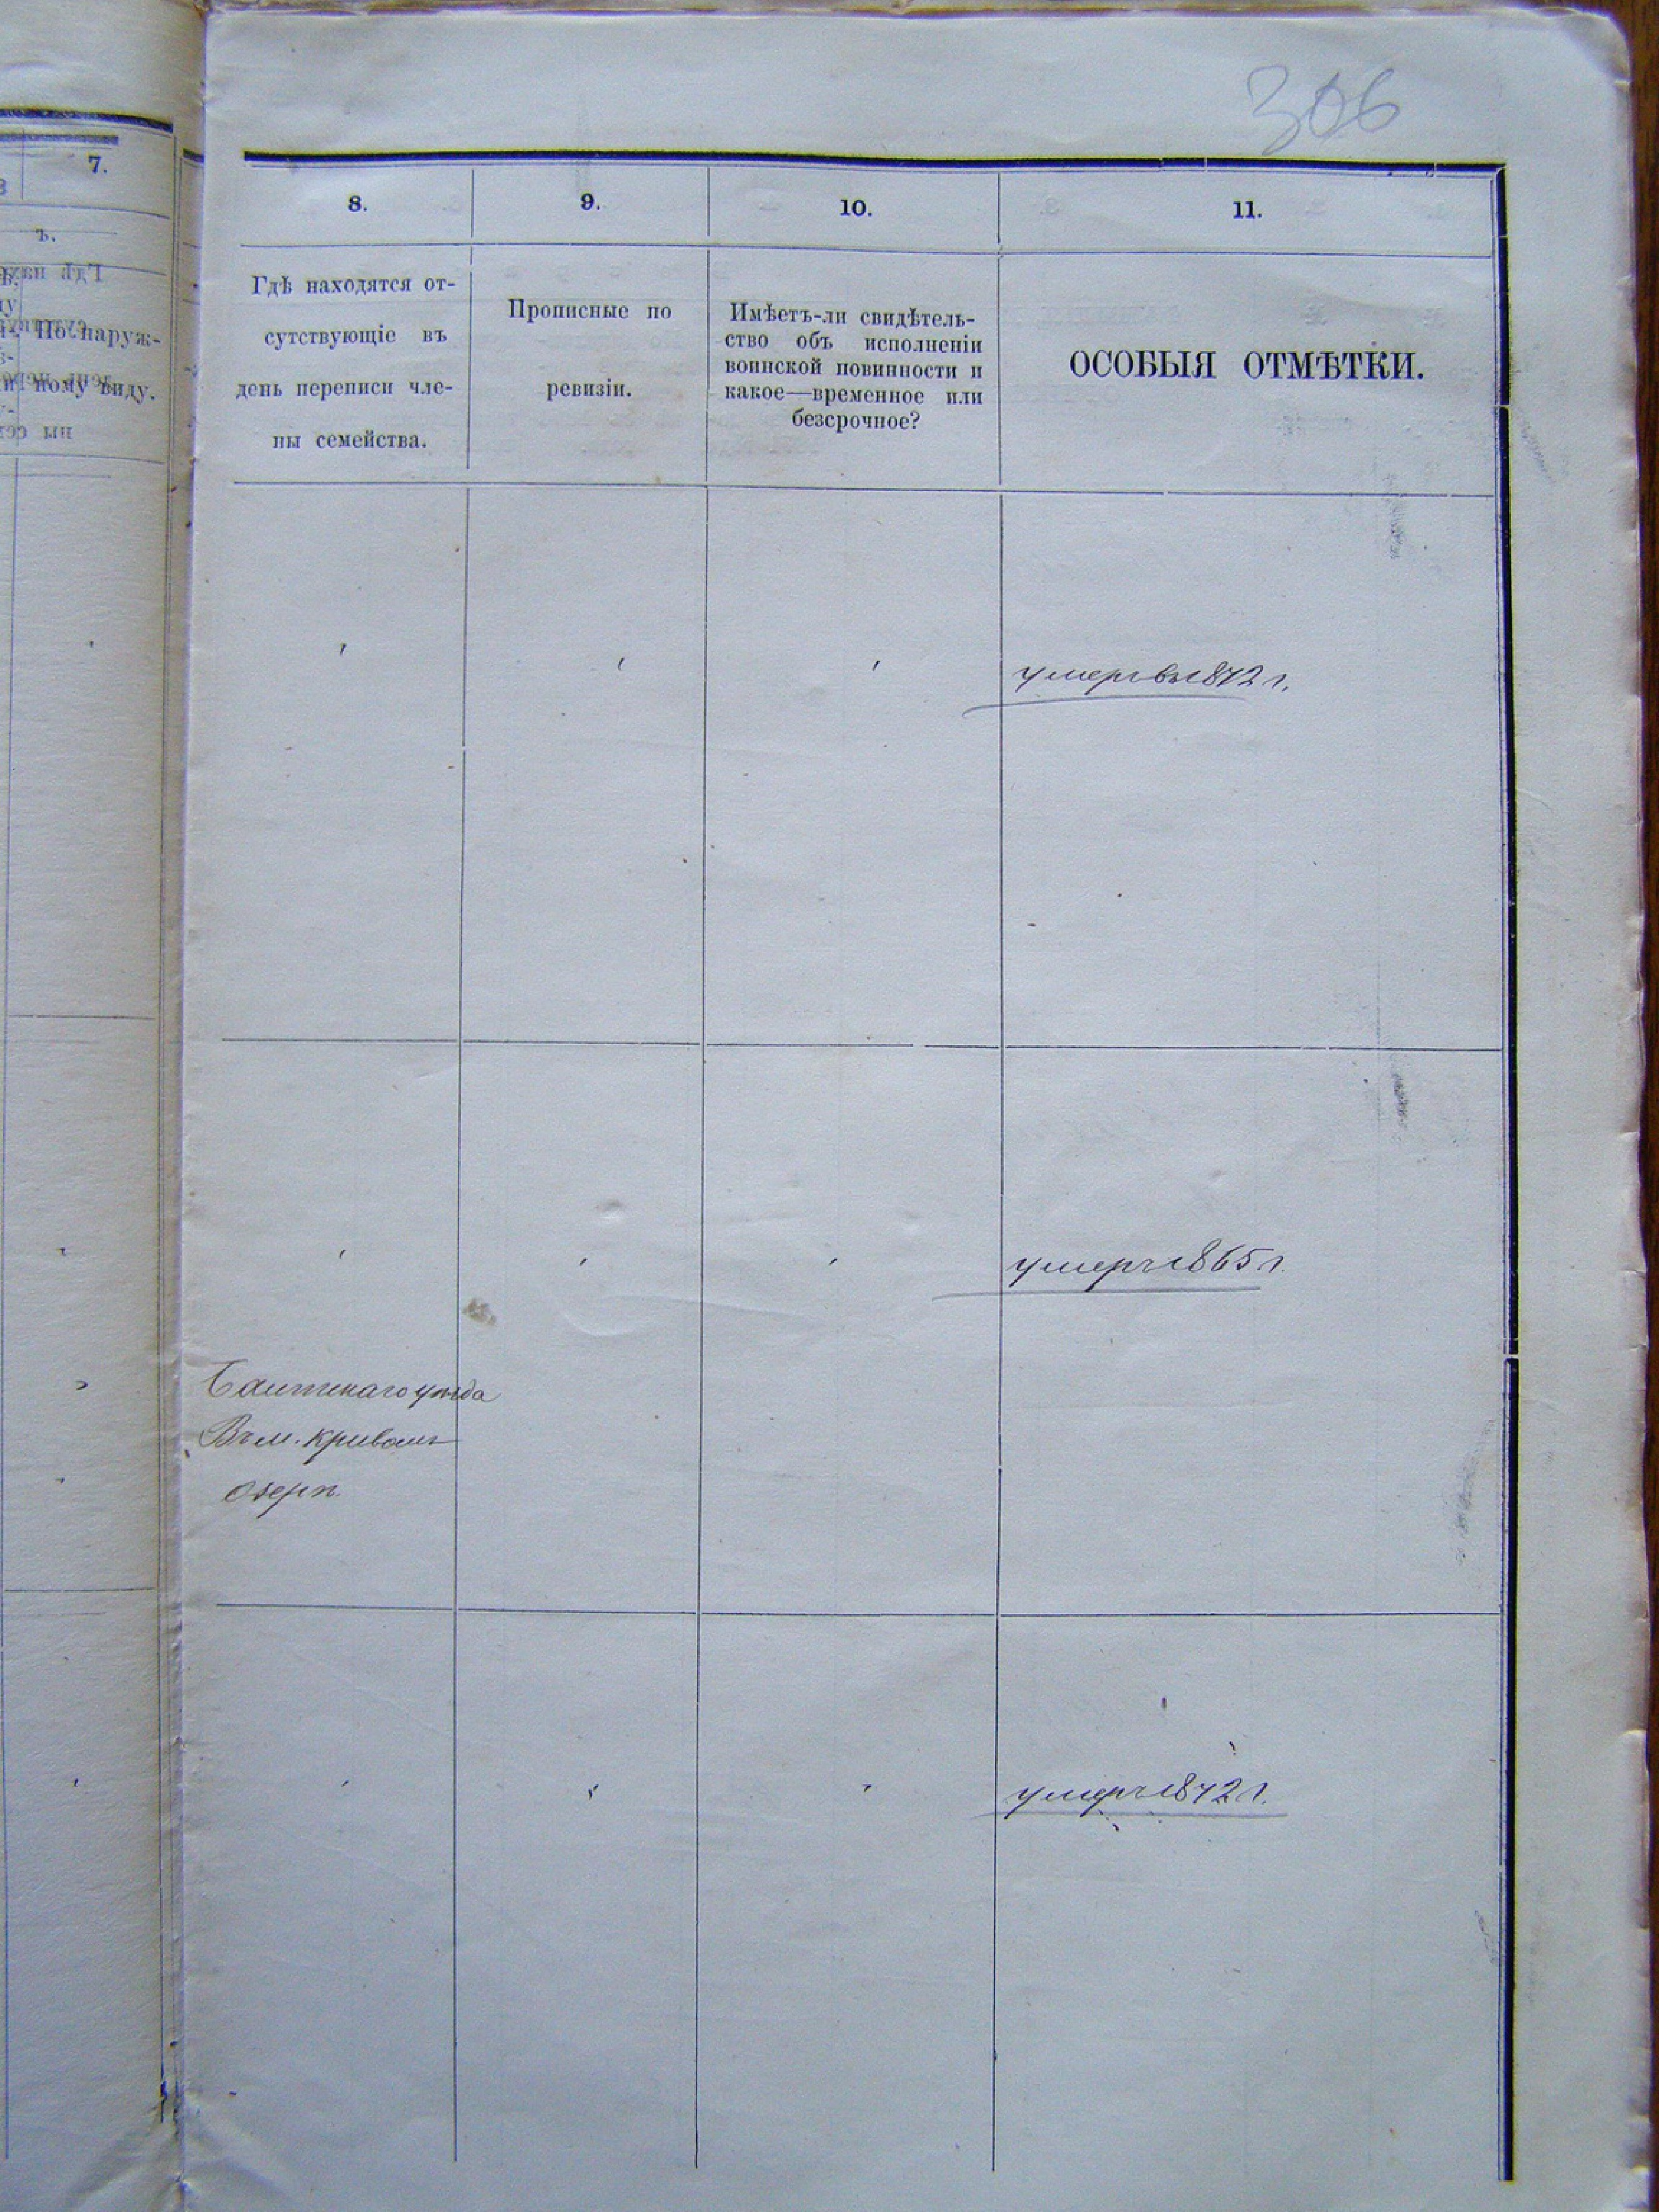 306
7.
ъ.
По наруж-
ному виду.
8.
9.
10.
11.
Гдѣ находятся от-
сутствующіе въ
день переписи чле-
ны семейства.
Прописные по
ревизіи.
Имѣетъ-ли свидѣтель-
ство объ исполненіи
воинской повинности и
какое—временное или
безсрочное?
ОСОБЫЯ ОТМѢТКИ.
умеръ въ 1872 г.
умеръ 1865 г.
Балтскаго уѣзда
Въ м. Кривомъ
Озерѣ
умеръ 1872 г.